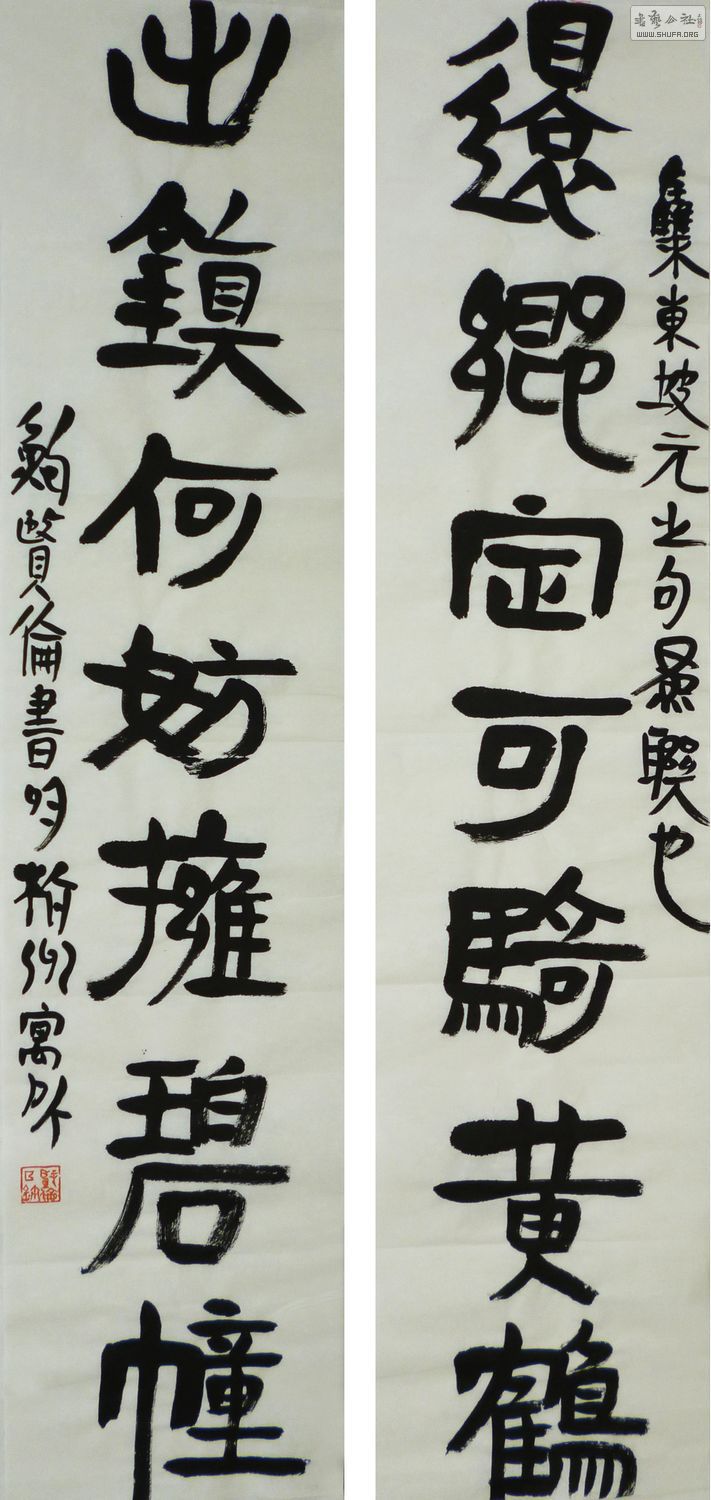 書藝公社
WWW.SHUFA.ORG
還鄉定可騎黃鶴
集東坡元之句聯也
出鎮何妨擁碧幢
鮑賢倫書時州寓所